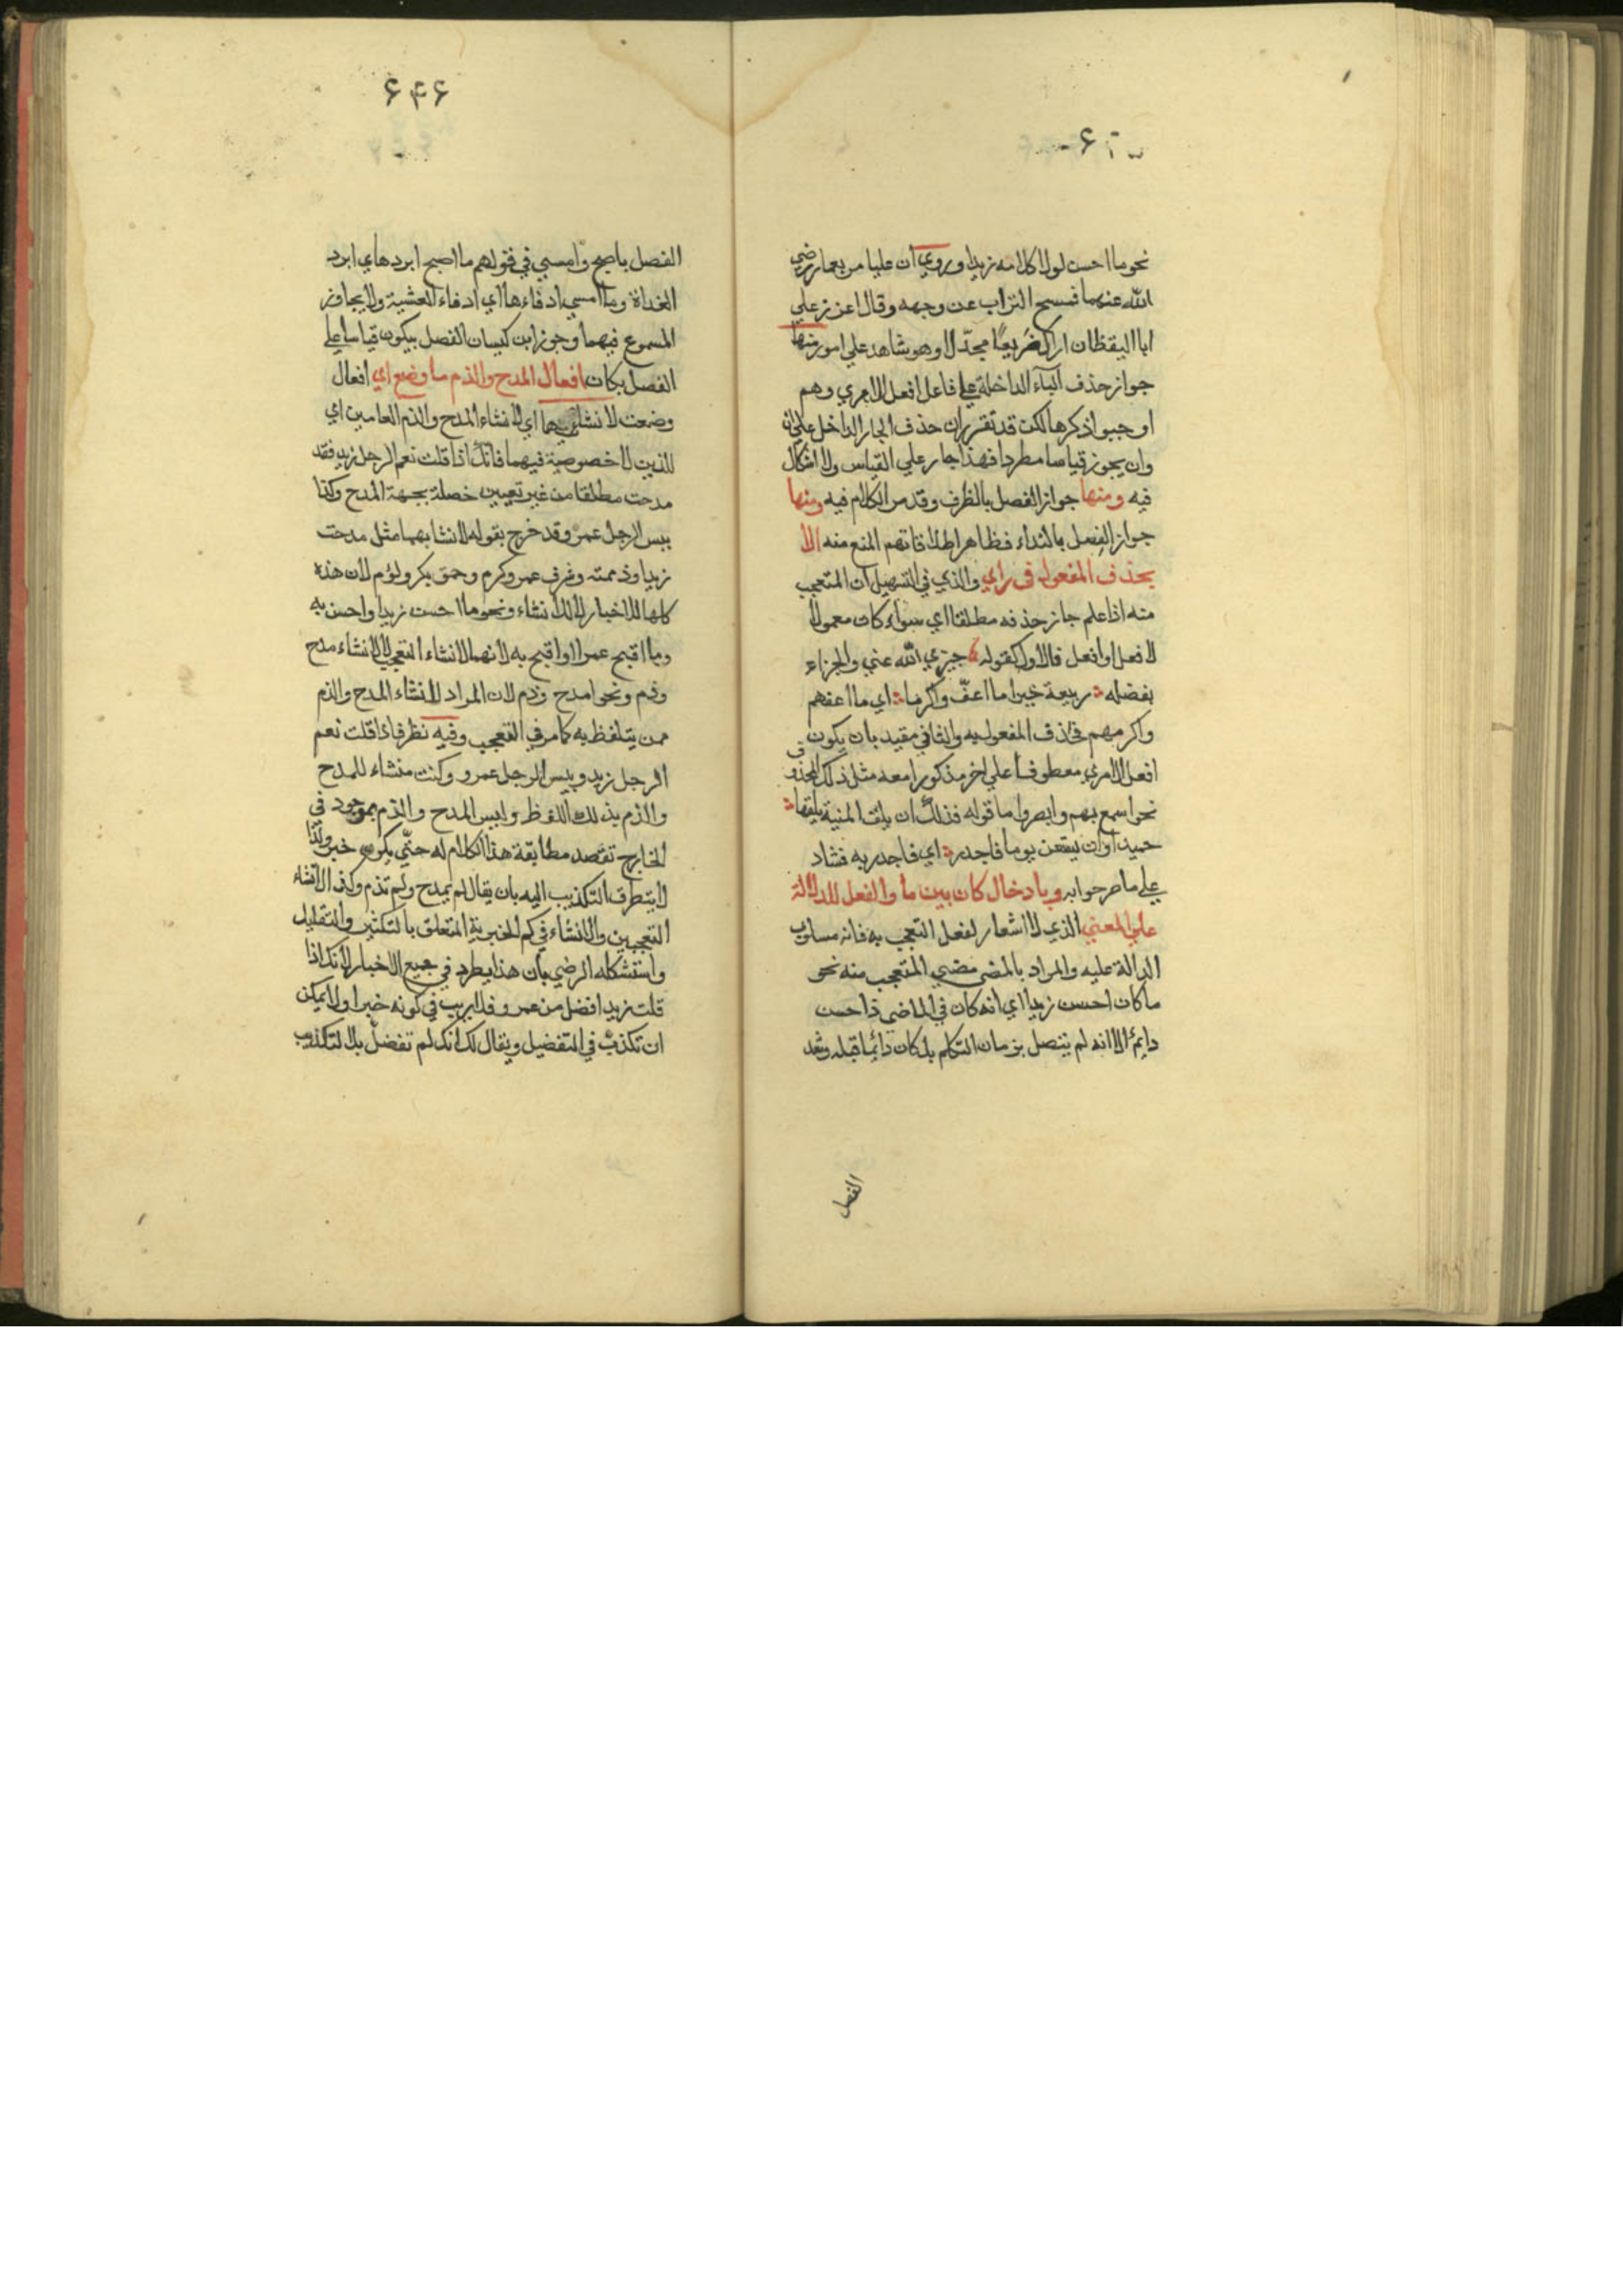 نحو ما احسن لولا كلامه زيدا وروي ان عليا مر بعمار رضي
الله عنهما فمسح التراب عن وجهه وقال اعزز علي
ابا اليقظان ان اراك صريعًا مجدّلا وهو شاهد علي امور منها
جواز حذف الباء الداخلة علي فاعل افعل الامري وهم
اوجبوا ذكرها لكن قد تقرر ان حذف الجار الداخل علي ان
وان يجوز قياسا مطردا فهذا جار علي القياس ولا اشكال
فيه ومنها جواز الفصل بالظرف وقد مر الكلام فيه ومنها
جواز الفصل بالنداء فظاهر اطلاقاتهم المنع منه الا
بحذف المفعول في راي والذي في التسهيل ان المتعجب
منه اذا علم جاز حذفه مطلقا اي سواء كان معمولا
لافعل او افعل فالاول كقوله جزي الله عني والجزاء
بفضله ربيعة خيرا ما اعفّ واكرما اي ما اعفهم
واكرمهم فحذف المفعول به والثاني مقيد بان يكون
افعل الامري معطوفا علي اخر مذكورا معه مثل ذلك المحذوف
نحو اسمع بهم وابصر واما قوله فذلك ان يلق المنية يلقها
حميدا وان يستغن يوما فاجدر اي فاجدر به فشاد
علي ما صرحوا به وبادخال كان بين ما والفعل للدلالة
علي المعني الذي لا اشعار لفعل التعجب به فانه مسلوب
الدلالة عليه والمراد بالمضي مضي المتعجب منه نحو
ما كان احسن زيدا اي انه كان في الماضي ذا حسن
دايم الا انه لم يتصل بزمان التكلم بل كان دائما قبله وبعد
الفصل
۶۴۶
الفصل باصبح وامسي في قولهم ما اصبح ابردها اي ابرد
الغداة وما امسي ادفاءها اي ادفاء العشية ولا يجاوز
المسموع فيهما وجوز ابن كيسان الفصل بيكون قياسا علي
الفصل بكان افعال المدح والذم ما وضع اي افعال
وضعت لانشاء اي لانشاء المدح والذم العامين اي
للذين لا خصوصية فيهما فانك اذا قلت نعم الرجل زيد فقد
مدحت مطلقا من غير تعيين خصلة بجهة المدح وكذا
بيس الرجل عمرو وقد خرج بقوله لانشا بهما مثل مدحت
زيدا وذممته وشرف عمرو وكرم وحمق بكر ولؤم لان هذه
كلها للاخبار لا للانشاء ونحو ما احسن زيدا واحسن به
وما اقبح عمرا واقبح به لانهما لانشاء التعجب لا لانشاء مدح
وذم ونحو امدح وذم لان المراد لانشاء المدح والذم
ممن يتلفظ به كما مر في التعجب وفيه نظر فاذا قلت نعم
الرجل زيد وبيس الرجل عمرو وكنت منشاء للمدح
والذم بذلك اللفظ وليس المدح والذم بموجود في
الخارج تقصد مطابقة هذا الكلام له حتّي يكون خبرا ولذا
لا يتطرق التكذيب اليه بان يقال لم يمدح ولم تذم وكذا الانشاء
التعجبين والانشاء في كم الخبرية المتعلق بالتكثير والتقليل
واستشكله الرضي بان هذا يطرد في جميع الاخبار لانك اذا
قلت زيد افضل من عمرو فلا ريب في كونه خبرا ولا يمكن
ان تكذب في التفضيل ويقال لك انك لم تفضل بل التكذيب